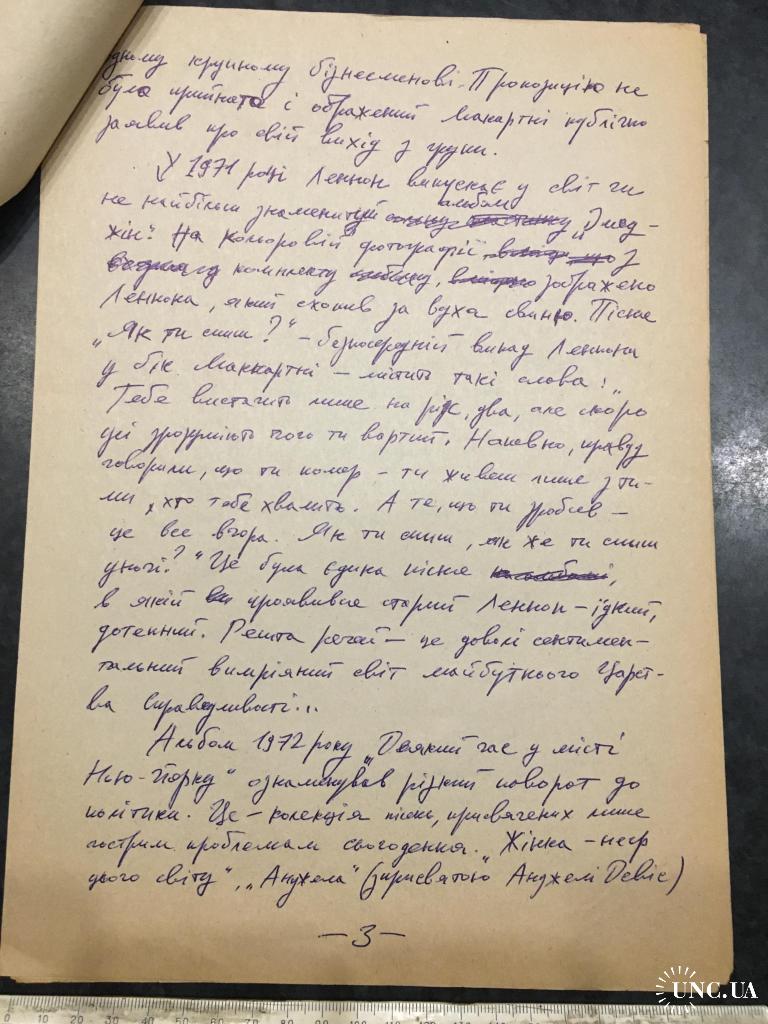 одному крупному бізнесменові. Пропозицію не
було прийнято і ображений Макартні публічно
заявив про свій вихід з групи.
У 1971 році Леннон випускає у світ чи
альбом
не найбільш знаменитий „Імед-
жін“. На кольоровій фотографії з
комплекту зображено
Леннона, який схопив за вуха свиню. Пісня
„Як ти спиш?“ – безпосередній випад Леннона
у бік Маккартні – містить такі слова: „
Тебе вистачить лише на рік, два, але скоро
всі зрозуміють чого ти вартий. Напевно, правду
говорили, що ти помер – ти живеш лише з ти-
ми, хто тебе хвалить. А те, що ти зробив –
це все вчора. Як ти спиш, як же ти спиш
уночі?“ Це була єдина пісня
в якій проявився старий Леннон – їдкий,
дотепний. Решта речей – це доволі сентимен-
тальний вимріяний світ майбутнього Царст-
ва Справедливості...
Альбом 1972 року „Деякий час у місті
Нью-Йорку“ ознаменував різкий поворот до
політики. Це – колекція пісень, присвячених лише
гострим проблемам сьогодення. „Жінка – негр
цього світу“, „Анджела“ (з присвятою Анджелі Девіс)
– 3 –
0 10 20 30 40 50 60 70 80 90 100
UNC.UA